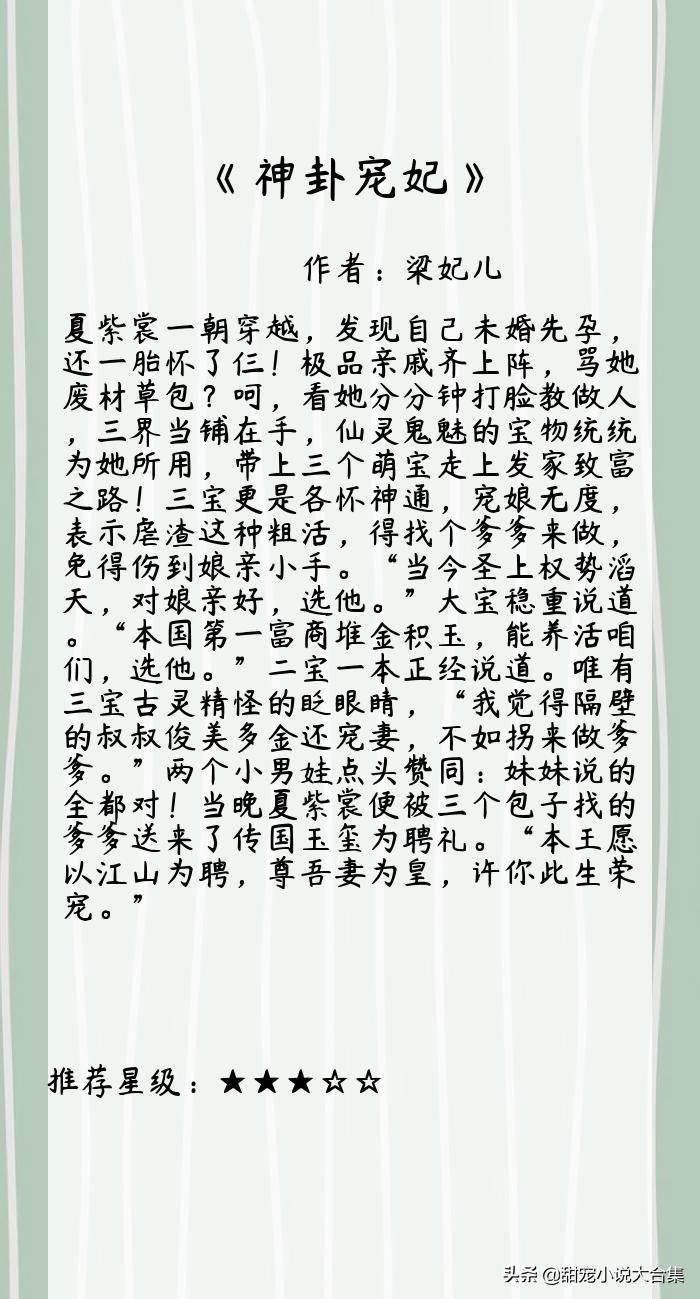 《神卦宠妃》
作者：梁妃儿
夏紫裳一朝穿越，发现自己未婚先孕，
还一胎怀了仨！极品亲戚齐上阵，骂她
废材草包？呵，看她分分钟打脸教做人
，三界当铺在手，仙灵鬼魅的宝物统统
为她所用，带上三个萌宝走上发家致富
之路！三宝更是各怀神通，宠娘无度，
表示虐渣这种粗活，得找个爹爹来做，
免得伤到娘亲小手。“当今圣上权势滔
天，对娘亲好，选他。”大宝稳重说道
。“本国第一富商堆金积玉，能养活咱
们，选他。”二宝一本正经说道。唯有
三宝古灵精怪的眨眼睛，“我觉得隔壁
的叔叔俊美多金还宠妻，不如拐来做爹
爹。”两个小男娃点头赞同：妹妹说的
全都对！当晚夏紫裳便被三个包子找的
爹爹送来了传国玉玺为聘礼。“本王愿
以江山为聘，尊吾妻为皇，许你此生荣
宠。”
推荐星级：★★★☆☆
头条 @甜宠小说大合集